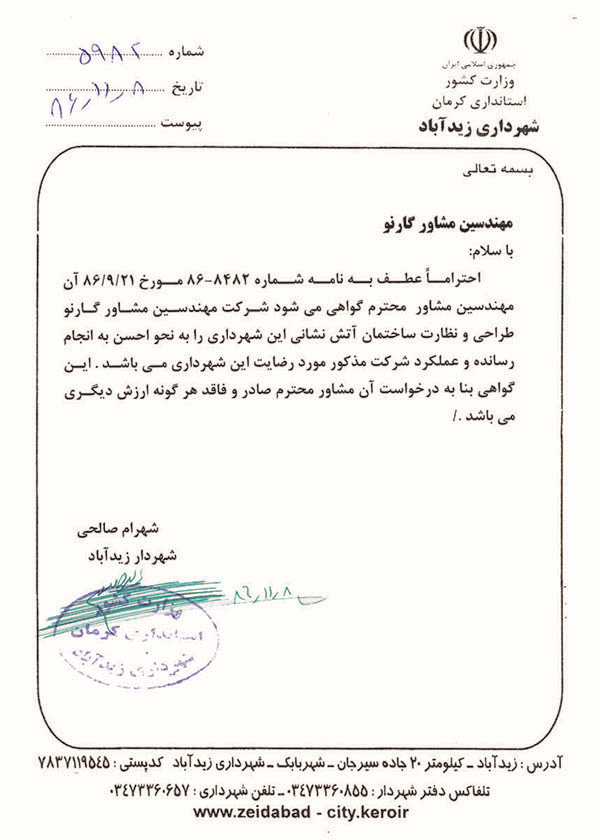 جمهوری اسلامی ایران
وزارت کشور
استانداری کرمان
شهرداری زیدآباد
شماره ۵۹۸۲
تاریخ ۸۶٫۱۱٫۸
پیوست
بسمه تعالی
مهندسین مشاور گارنو
با سلام:
احتراماً عطف به نامه شماره ۸۴۸۲-۸۶ مورخ ۸۶/۹/۲۱ آن
مهندسین مشاور محترم گواهی می شود شرکت مهندسین مشاور گارنو
طراحی و نظارت ساختمان آتش نشانی این شهرداری را به نحو احسن به انجام
رسانده و عملکرد شرکت مذکور مورد رضایت این شهرداری می باشد . این
گواهی بنا به درخواست آن مشاور محترم صادر و فاقد هر گونه ارزش دیگری
می باشد ./
شهرام صالحی
شهردار زیدآباد
۸۶٫۱۱٫۸
وزارت کشور
استانداری کرمان
شهرداری زیدآباد
آدرس : زیدآباد ـ کیلومتر ۲۰ جاده سیرجان ـ شهربابک ـ شهرداری زیدآباد کدپستی : ۷۸۳۷۱۱۹۵۴۵
تلفاکس دفتر شهردار : ۰۳۴۷۳۳۶۰۸۵۵ ـ تلفن شهرداری : ۰۳۴۷۳۳۶۰۶۵۷
www.zeidabad - city.keroir